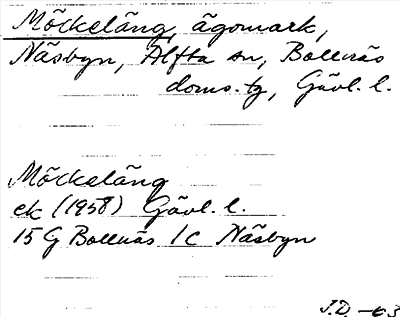 Möckeläng, ägomark,
Näsbyn, Alfta sn, Bollnäs
doms.tg, Gävl. l.
Möckeläng
ek (1958) Gävl. l.
15 G Bollnäs 1c Näsbyn
J.D. -63